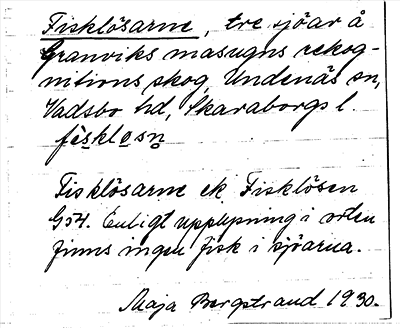 Fisklösarne, tre sjöar å
Granviks masugns rekog-
nitions skog, Undenäs sn,
Vadsbo hd, Skaraborgs l.
fisklosn
Fisklösarne ek Fisklösen
G54. Enligt upplysning i orten
finns ingen fisk i sjöarna.
Maja Bergstrand 1930.